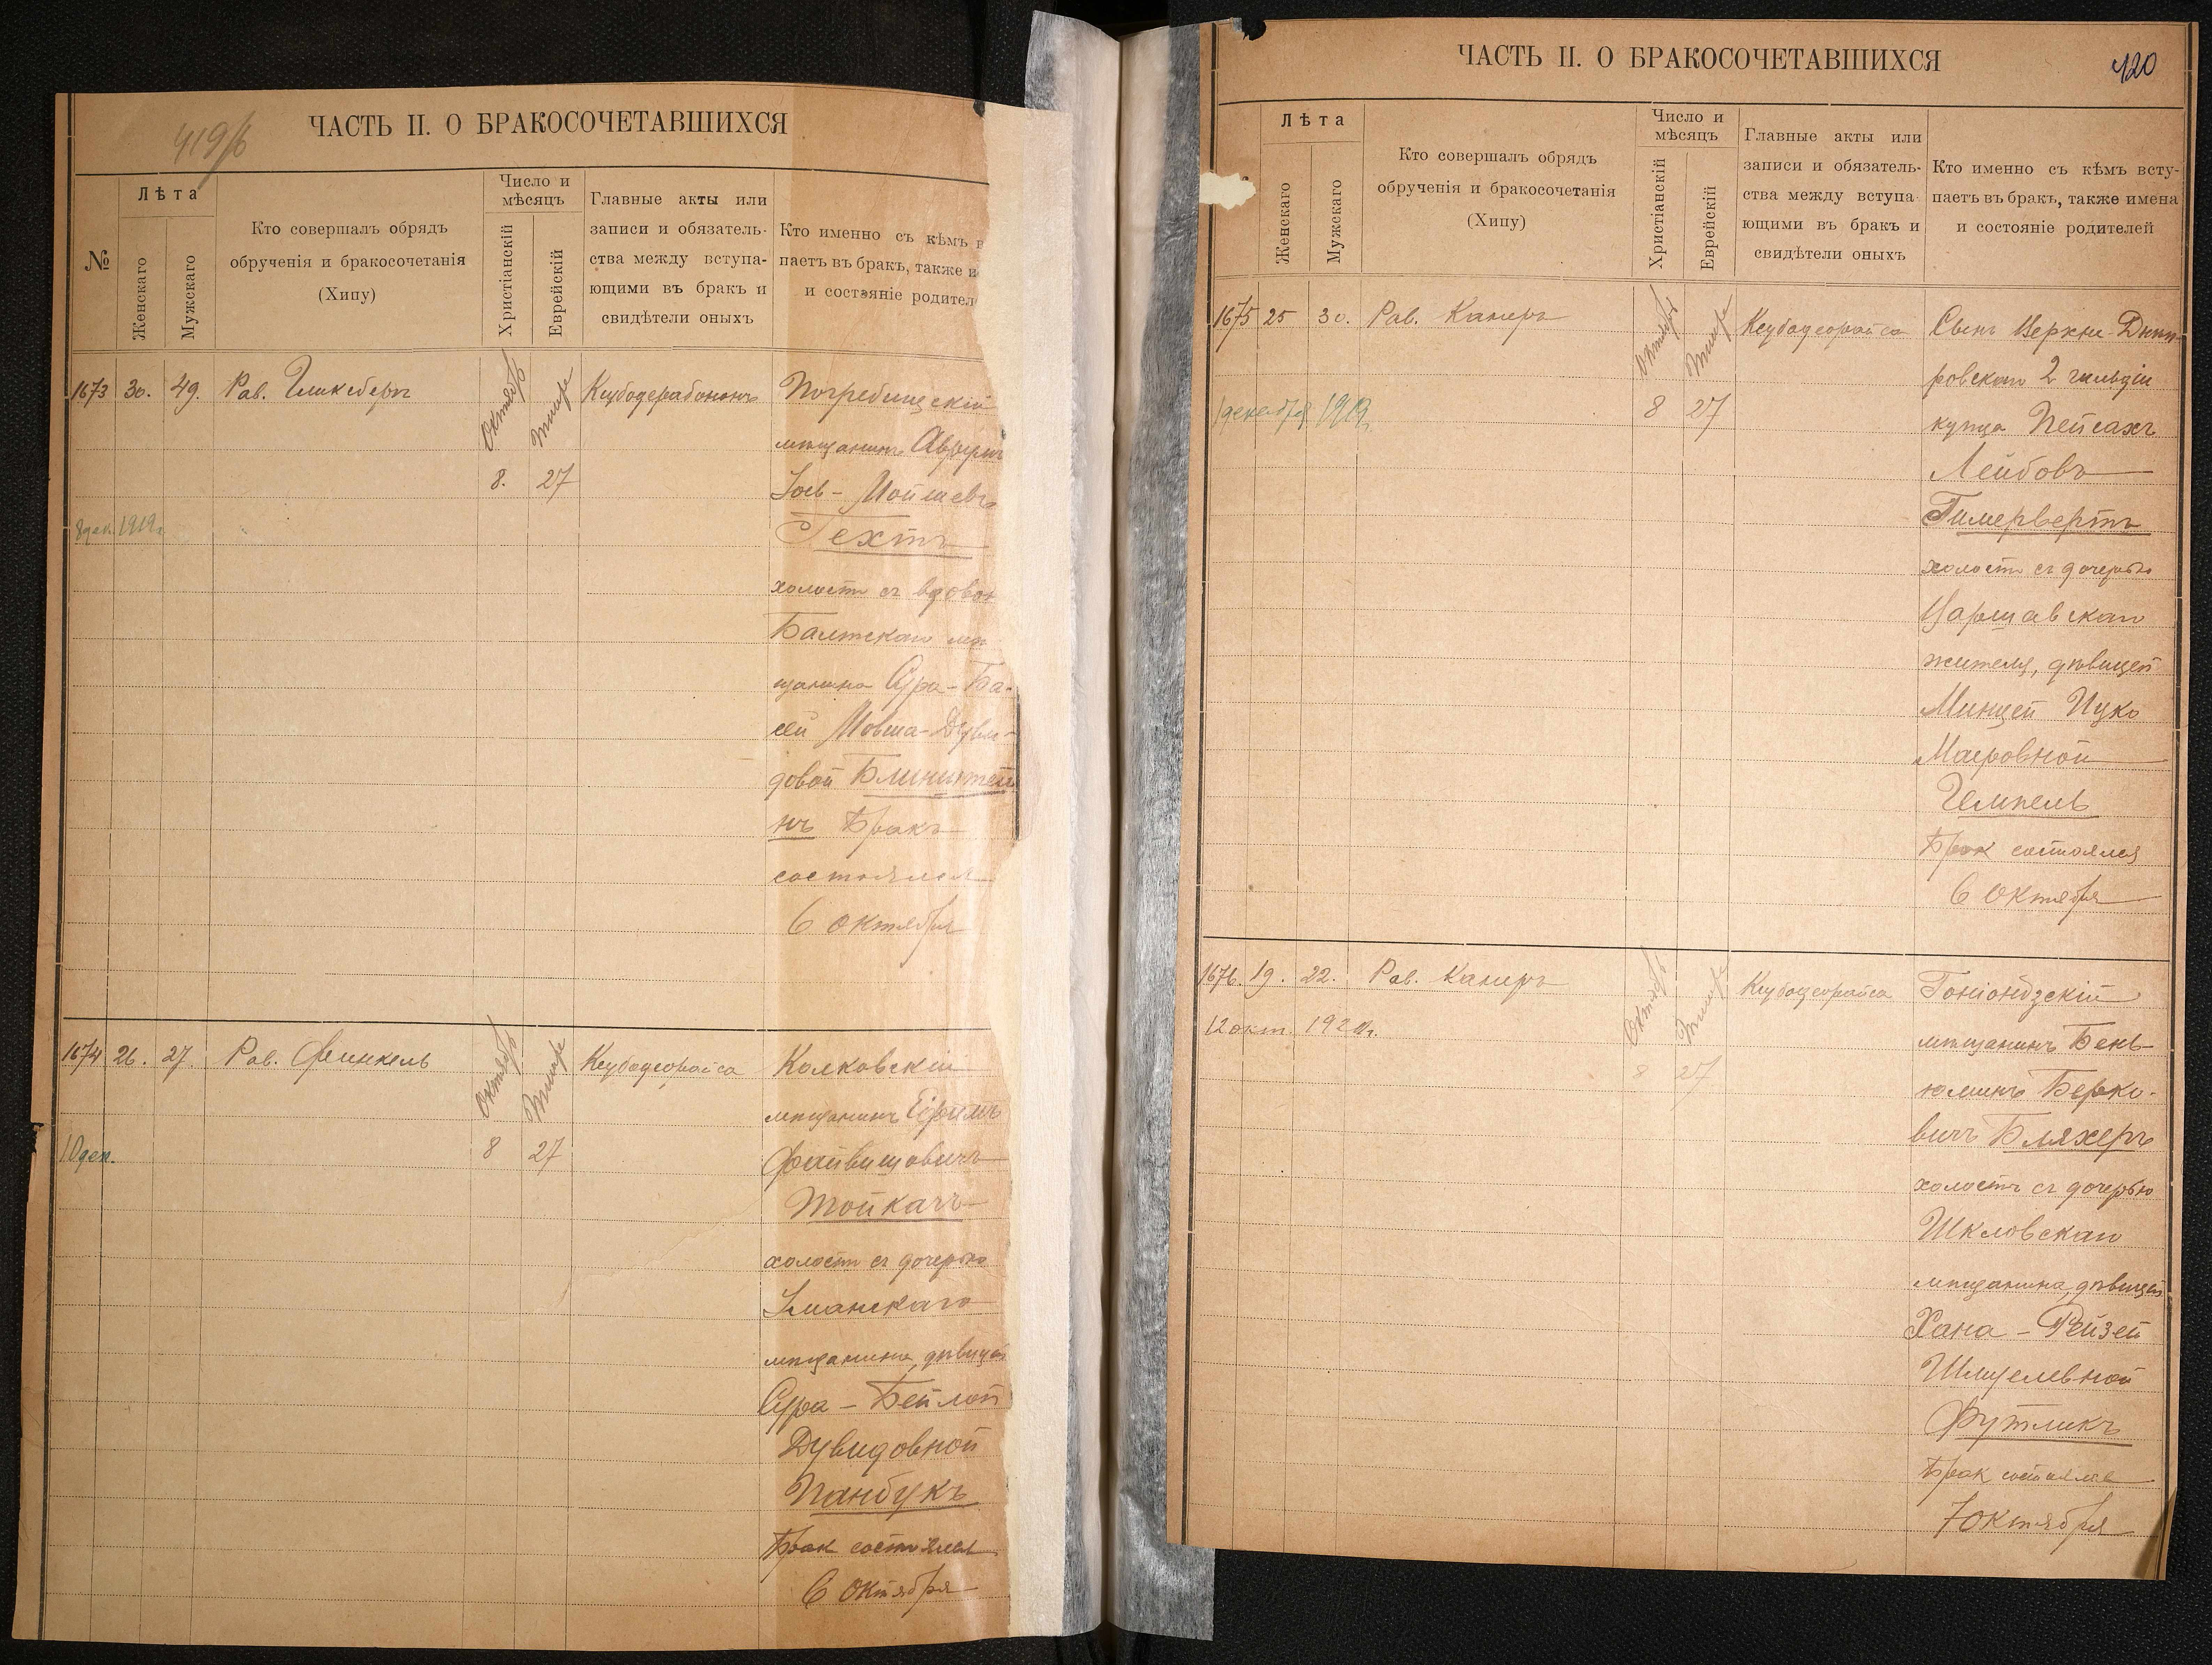 419/б
ЧАСТЬ II. О БРАКОСОЧЕТАВШИХСЯ
№
Лѣта
Женскаго
Мужскаго
Кто совершалъ обрядъ
обрученія и бракосочетанія
(Хипу)
Число и
мѣсяцъ
Христіанскій
Еврейскій
Главные акты или
записи и обязатель-
ства между вступа-
ющими въ бракъ и
свидѣтели оныхъ
Кто именно съ кѣмъ в
паетъ въ бракъ, также и
и состояніе родител
1673 30. 49. Рав. Гликсбергъ
Октябрь Тишре
8. 27
8 дек. 1919г.
Погребищескій
мѣщанинъ
Іос- Мойшевъ
Гехтъ
холостъ съ вдовой
Балтскаго мѣ
щанина Сура-Ба-
сей Мовша-Дуви-
довой Блинштей
нъ Бракъ
состоялся
6 октября
1674 26. 27. Рав. Финкель
Октябрь Тишре
8 27
10 дек.
Кецубодеорайса
Колковскій
мѣщанинъ Ефимъ
Файвишовичъ
Тойкачъ
холостъ съ дочерью
Уманскаго
мѣщанина, дѣвицей
Сура - Бейлой
Дувидовной
Панбукъ
Брак состоялся
6 Октября
420
ЧАСТЬ II. О БРАКОСОЧЕТАВШИХСЯ
Лѣта
Женскаго
Мужскаго
Кто совершалъ обрядъ
обрученія и бракосочетанія
(Хипу)
Число и
мѣсяцъ
Христіанскій
Еврейскій
Главные акты или
записи и обязатель-
ства между вступа-
ющими въ бракъ и
свидѣтели оныхъ
Кто именно съ кѣмъ всту-
паетъ въ бракъ, также имена
и состояніе родителей
1675 25 30. Рав. Канеръ
Октябрь Тишре
8 27
1 декабря 1919г.
Кецубодеорайса
Сынъ Верхне-Днѣп-
ровскаго 2 гильдіи
купца Пейсахъ
Лейбовъ
Гимервертъ
холостъ съ дочерью
жителя, дѣвицей
Минцей Ицко
Маеровной
Гемпель
Брак состоялся
6 Октября
1676. 19. 22. Рав. Канеръ
Октябрь Тишре
8 27
12 окт.
Кецубодеорайса
Гоніондзскій
мѣщанинъ Бень-
юминъ Берко-
вичъ Бляхеръ
холостъ съ дочерью
Шкловскаго
мѣщанина, дѣвицей
Хана - Рейзей
Футликъ
Брак состоялся
7 Октября